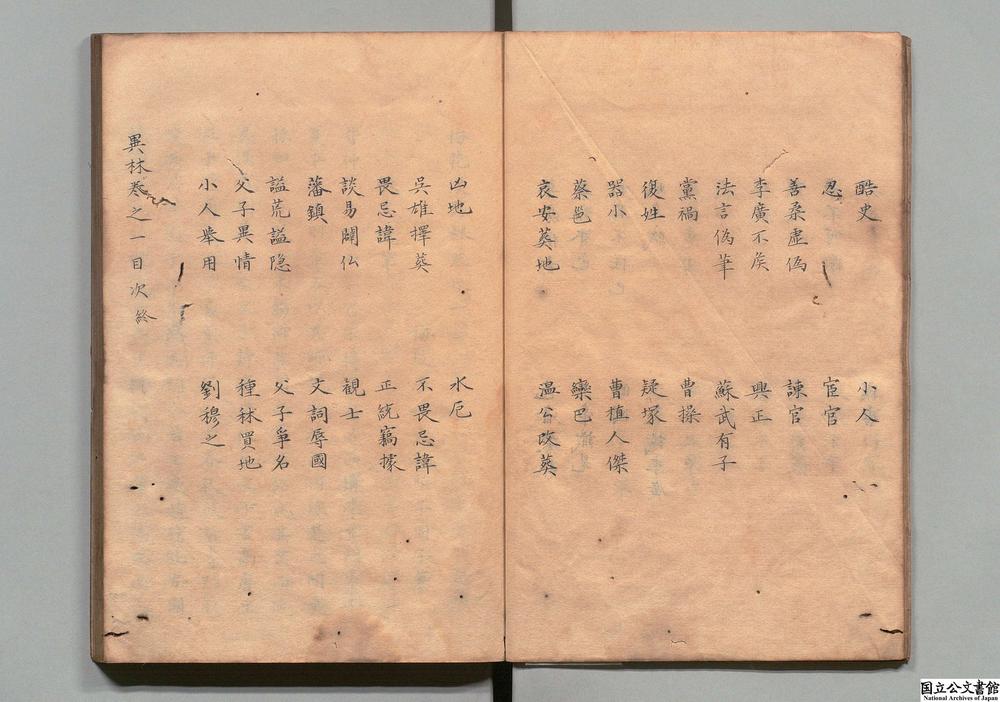 酷史　小人
忍　宦官
善柔虚偽　諌官
李廣不矦　興正
法言偽筆　蘇武有子
黨禍　曹操
復姓　疑塚
器小　曹植人傑
蔡邕　欒巴
哀安葬地　温公改葬
凶地　水厄
吳雄擇葬　不畏忌諱
畏忌諱　正統竊據
談易闢仏　観士
藩鎮　文詞辱國
謚荒謚隐　父子爭名
父子異情　種秫買地
小人舉用　劉穆之
異林巻之一目次終
国立公文書館
National Archives of Japan